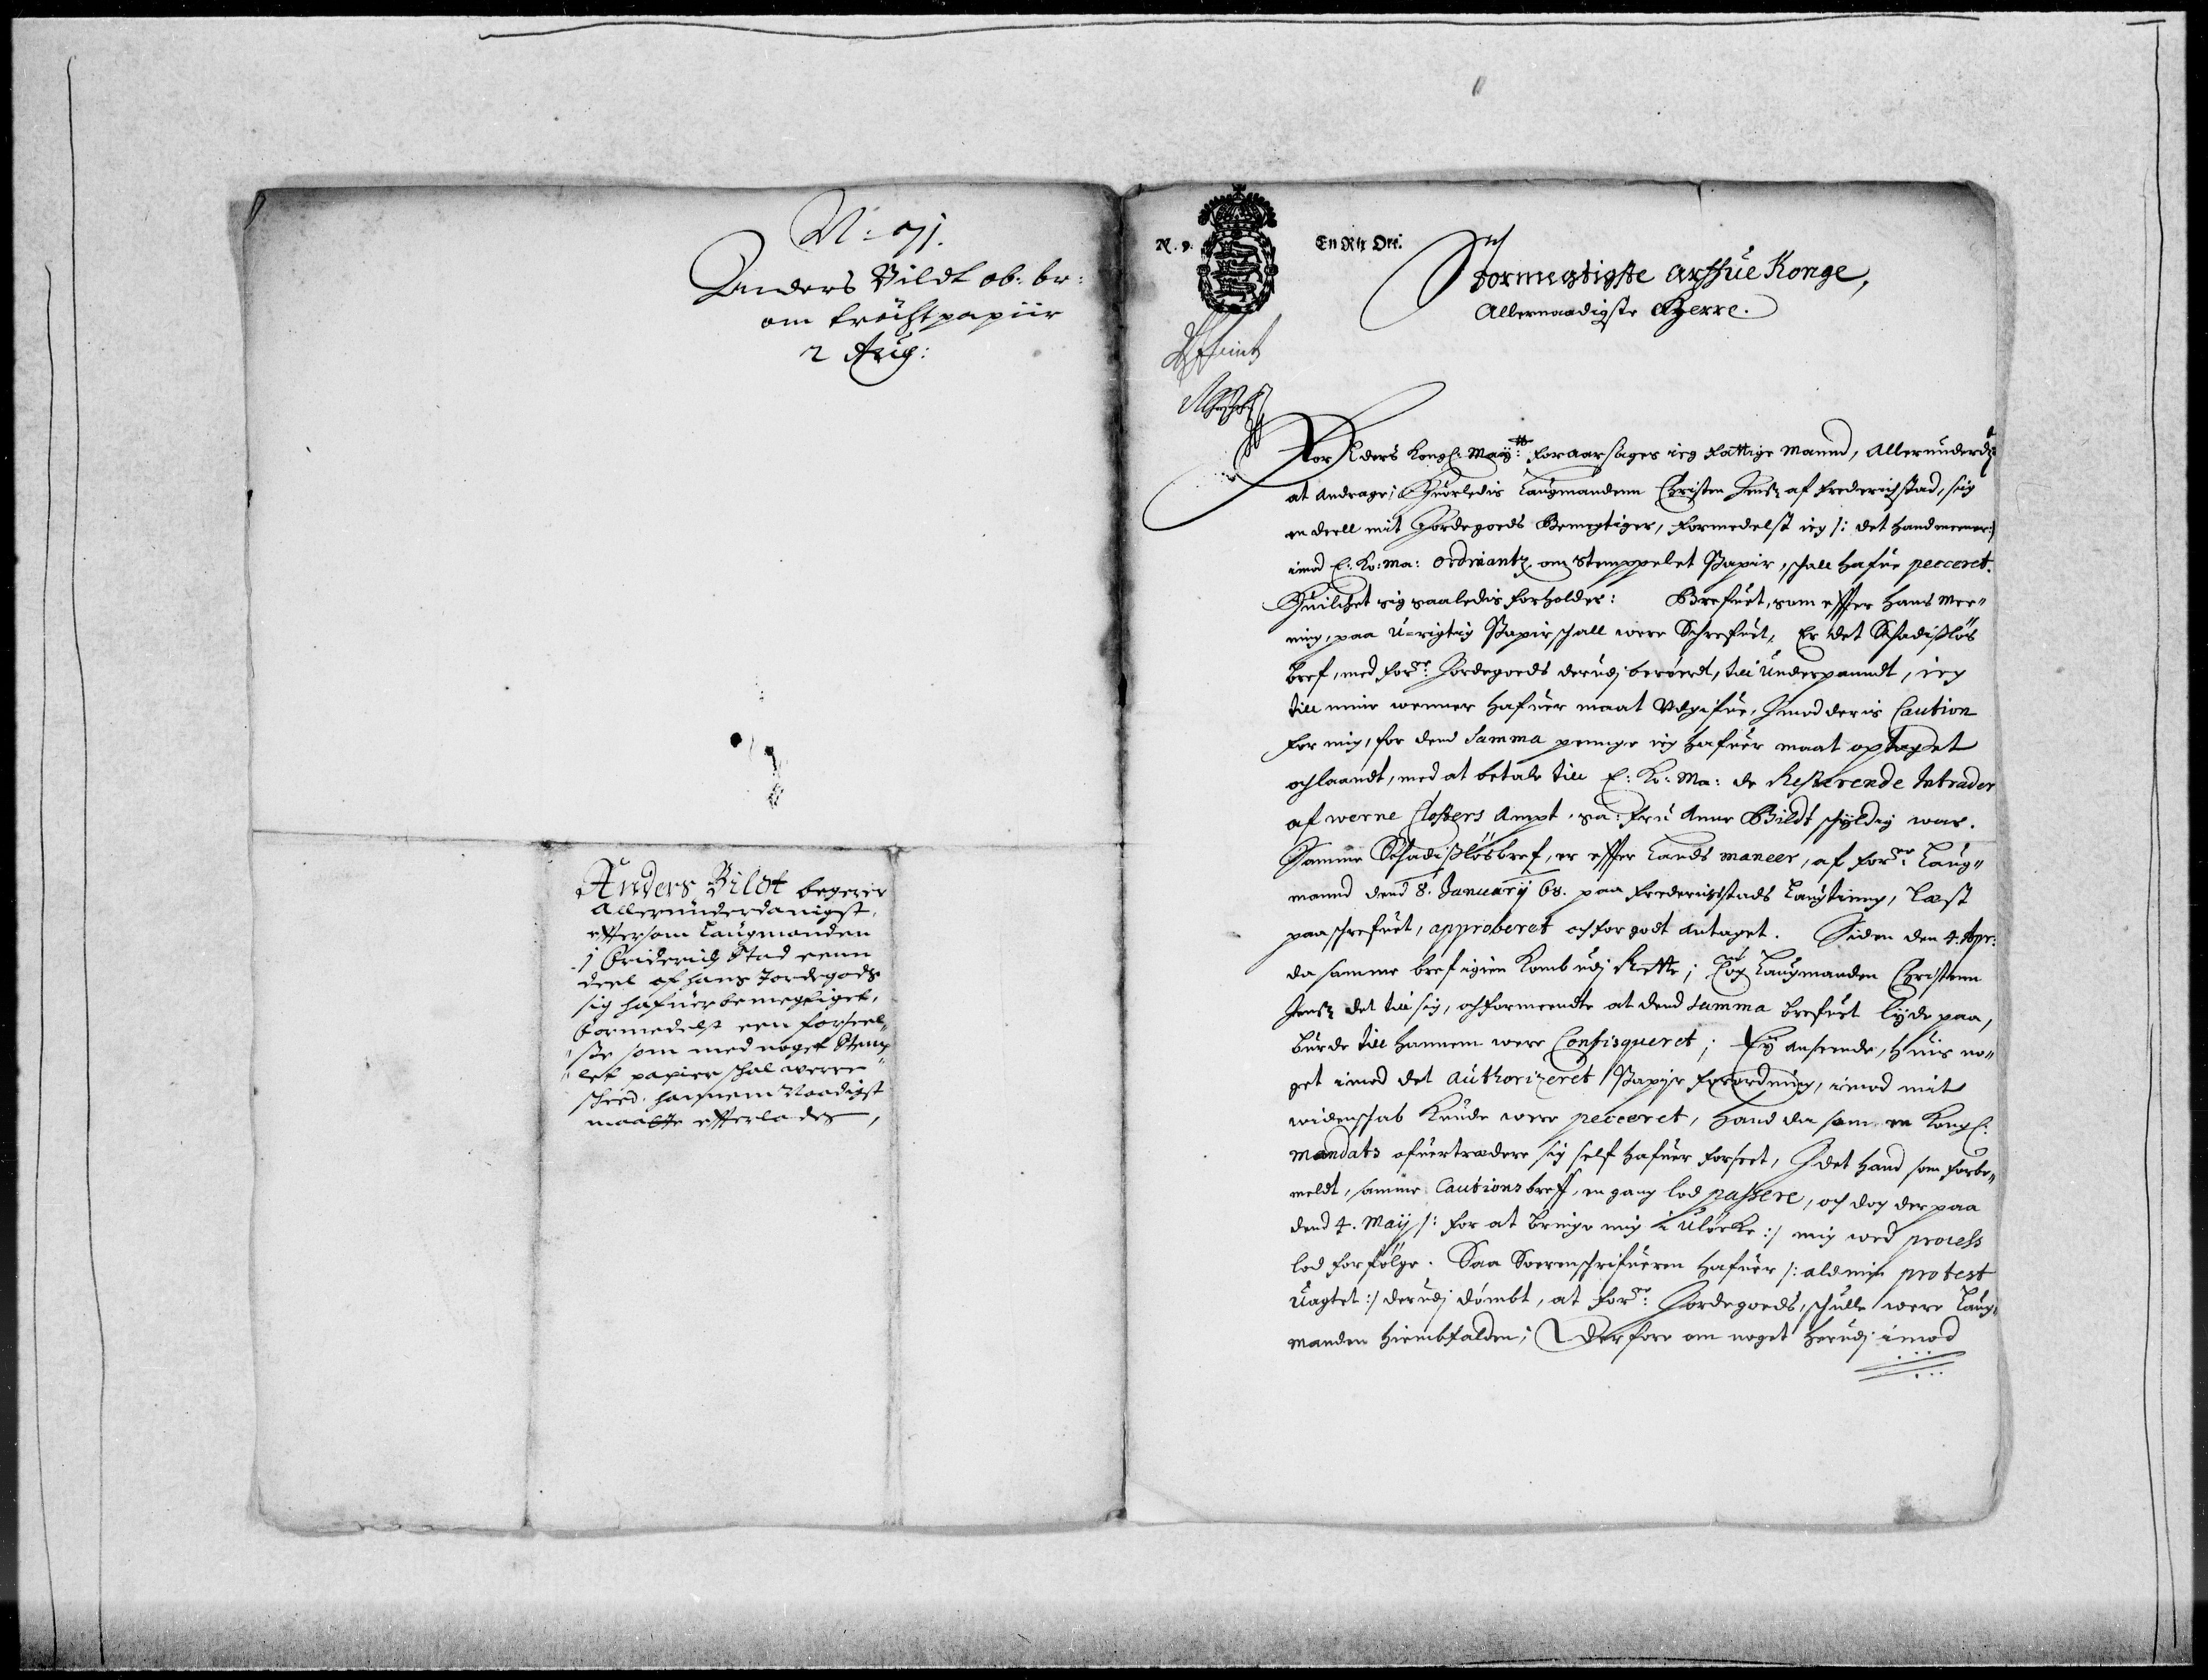 N: 71.
Anders Bildt ob: br:
om tröchtpapiir
2 Aug:
Anders Bildt begerer
Allerunderdanigst,
efftersom Laugmanden
i Friderich Stad eenn
deel af hans Jordegods
sig hafuer bemegtiget,
formedelst een forseel„
sse som med noget Stemp„
let papier schal werre
scheed. hannem Naadigst
maatte effterlades,
N. 9. En Rix Ort.
Stormegtigste Arffue Konge,
Allernaadigste Herre.
For Eders Kongl: May:tt foraarsages ieg fattige Mannd, Allerunderd:
at Andrage; Huorledis Laugmandenn Christen Jenss: af Frederichstad, sig
en deell mit Jordegoeds Bemegtiger, formedelst ieg /: det hand meener :/
imod E: Ko: Ma: Ordinantz om Stemppelet Papir, schall hafue pecceret.
Huilchet sig saaledis forholder: Brefuet, som effter hans Mee„
ning, paa u-rigtig Papir schall were Schrefuet, Er det Schadisløs
bref, med for:ne Jordegoeds derudj berørdt, till Underpanndt, ieg
till mine wenner hafuer maat Udgifue, Jmod deris Caution
for mig, for dend Summa penge ieg hafuer maat optaget
och laandt, med at betale till E: Ko: Ma: de Resterende Intrader
af werne Closters Ampt, sa: Fru Anne Bildt schyldig war.
Samme Schadisløsbref, er effter Lands maneer, af for:ne Laug„
mannd dend 8. January 68. paa Frederichstads Laugting, Læst
paaschrefuet, approberet och for godt Antaget. Siden den 4. Apr:
da samme bref igien komb udj Rette; tog Laugmanden Christenn
Jenss: det till sig, och formeendte at dend Summa brefuet lyde paa,
burde till hannem were Confisqueret; Ey anseende, huis no„
get imod det Authorizeret Papijr forordning, imod mit
widenschab kunde were pecceret, hand da som en Kongl:
Mandats ofuertrædere sig self hafuer forseet, J det hand som forbe„
meldt, samme Cautionsbreff, en gang lod passere, och dog der paa
dend 4. Maij /: for at bringe mig i uløcke :/ mig wed process
lod forfølge. Saa Sorenschrifueren hafuer /: all min protest
Uagtet :/ derudj dømbt, at for:ne Jordegoeds, schulle were Laug„
manden hiembfalden; Derfore om noget herudj imod